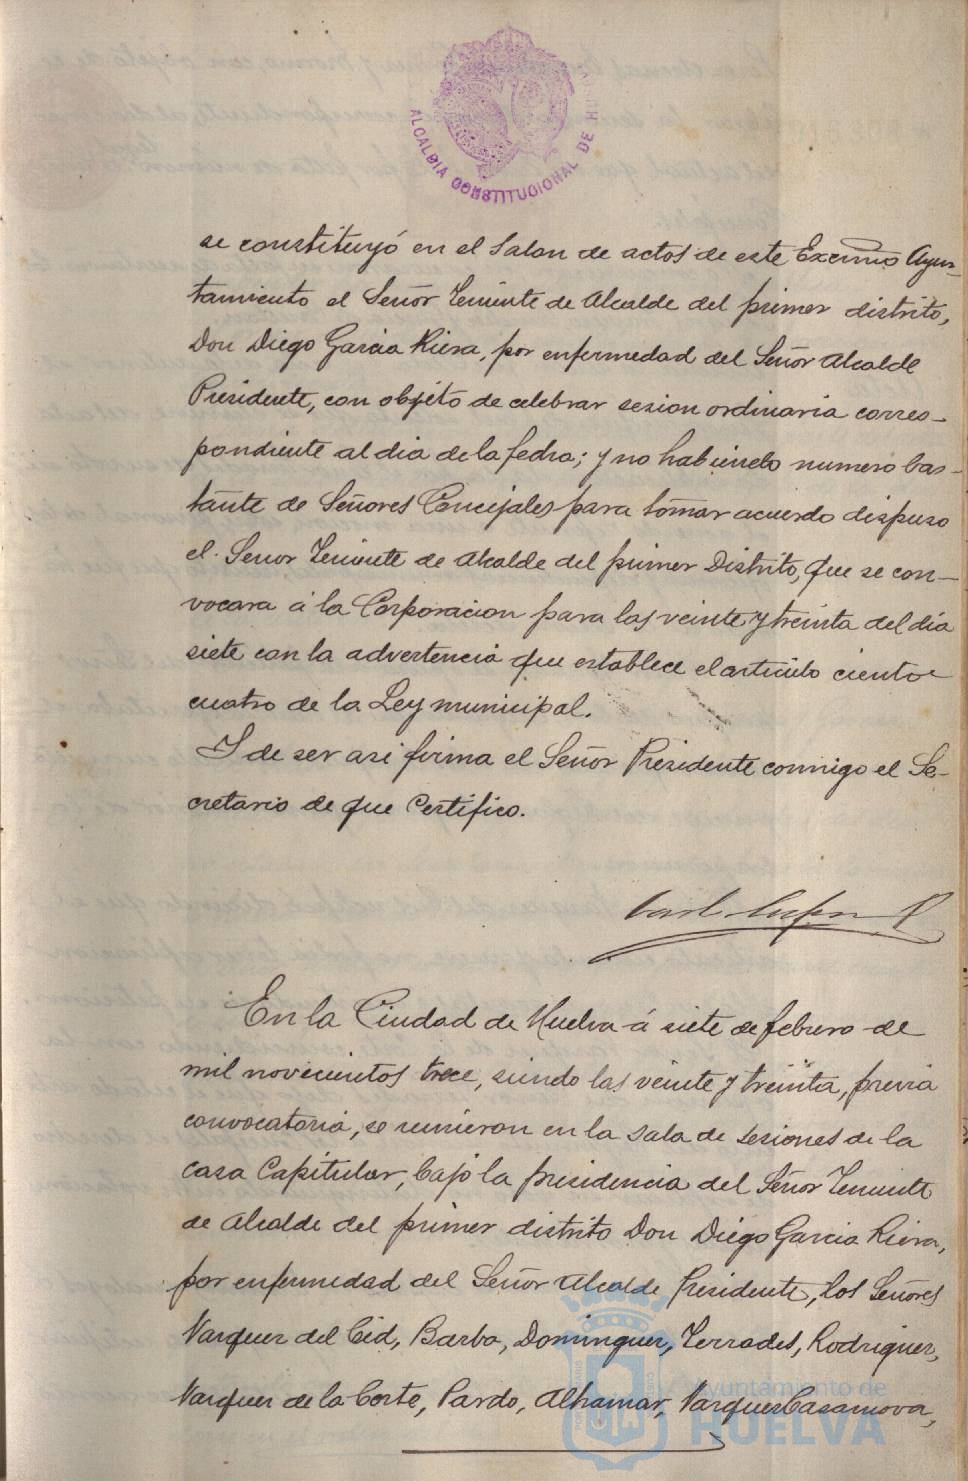 ALCALDIA CONSTITUCIONAL DE H
se constituyó en el Salon de actos de este Excmo Ayun-
tamiento el Señor Teniente de Alcalde del primer distrito,
Don Diego Garcia Riera, por enfermedad del Señor Alcalde
Presidente, con objeto de celebrar sesion ordinaria corres-
pondiente al dia de la fecha; y no habiendo numero bas-
tante de Señores Concejales para tomar acuerdo dispuso
el Señor Teniente de Alcalde del primer Distrito, que se con-
vocara á la Corporacion para las veinte y treinta del dia
siete con la advertencia que establece el articulo ciento
cuatro de la Ley municipal.
Y de ser asi firma el Señor Presidente conmigo el Se-
cretario de que Certifico.
En la Ciudad de Huelva á siete de febrero de
mil novecientos trece, siendo las veinte y treinta, previa
convocatoria, se reunieron en la sala de sesiones de la
casa Capitular, bajo la presidencia del Señor Teniente
de Alcalde del primer distrito Don Diego Garcia Riera,
por enfermedad del Señor Alcalde Presidente, los Señores
Vazquez del Cid, Barba, Dominguez, Terrades, Rodriguez,
Vazquez de la Corte, Pardo, Alhamar, Vazquez Casanova,
Ayuntamiento de
HUELVA